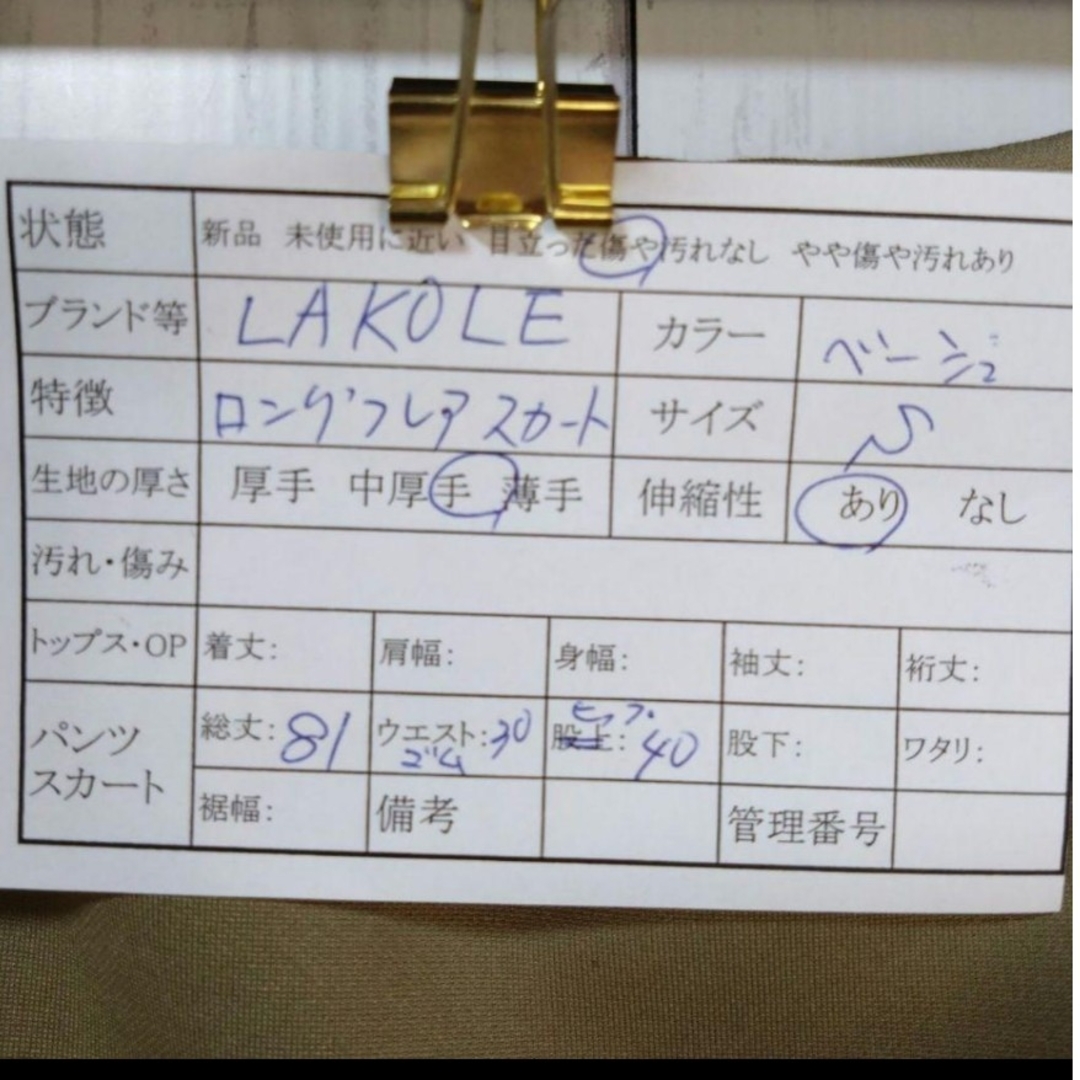 状態 新品 未使用に近い 目立った傷や汚れなし やや傷や汚れあり
ブランド等 LAKOLE カラー ベージュ
特徴 ロングフレアスカート サイズ S
生地の厚さ 厚手 中厚手 薄手 伸縮性 あり なし
汚れ・傷み
トップス・OP 着丈: 肩幅: 身幅: 袖丈: 裄丈:
パンツ
スカート
総丈: 81 ウエスト: 30 ゴム 股上: ヒップ 40 股下: ワタリ:
裾幅: 備考 管理番号